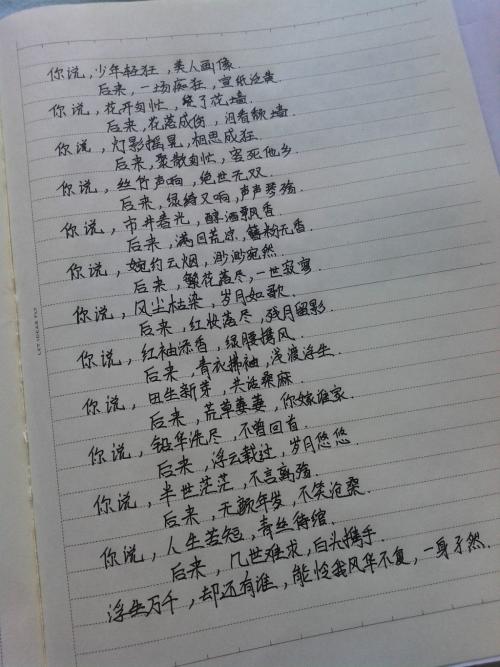 你说，少年轻狂，美人画像.
后来，一场痴狂，宣纸泛黄.
你说，花开匆忙，绕了花墙.
后来，花落成伤，泪看颓墙
你说，灯影摇晃，相思成狂.
后来，聚散匆忙，客死他乡.
你说，丝竹声响，绝世无双.
后来，绿绮又响，声声琴殇.
你说，市井春光，醇酒飘香.
后来，满目荒凉，簪粉无香.
你说，婉约云烟，渺渺宛然.
后来，繁花落尽，一世寂寥.
你说，风尘枯染，岁月如歌.
后来，红妆落尽，残月留影.
你说，红袖添香，绿腰携风.
后来，青衣拂袖，浅渡浮生.
你说，田生新芽，共话桑麻.
后来，荒草萋萋，你嫁谁家.
你说，铅华洗尽，不曾回首.
后来，浮云载过，岁月悠悠.
你说，半世茫茫，不言离殇.
后来，无颜年岁，不笑沧桑.
你说，人生苦短，青丝绾.
后来，几世难求，白头携手.
浮生万千，却还有谁，能怜我风华不复，一身孑然.